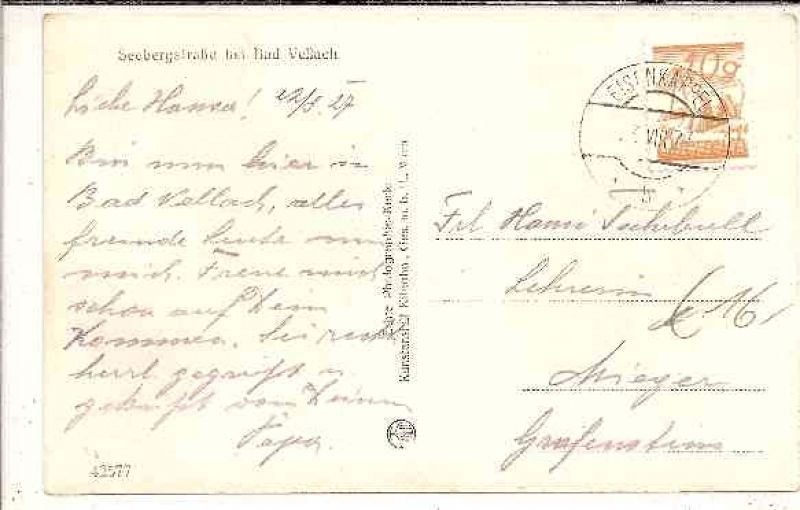 Seebergstraße bei Bad Vellach
Liebe Hansa! 22/5.27
Bin nun hier in
Bad Vellach, alles
fremde Leute um
mich. Freue mich
schon auf Dein
Kommen. Sei recht
herzl gegrüßt u
geküßt von Deinem
Papa.
42577
Echte Photographie-Karte
Kunstanstalt Kilophot, Ges. m. b. H., Wien
10g
EISENKAPPEL
Frl Hansi
Lehrerin
Mieger
Grafenstein